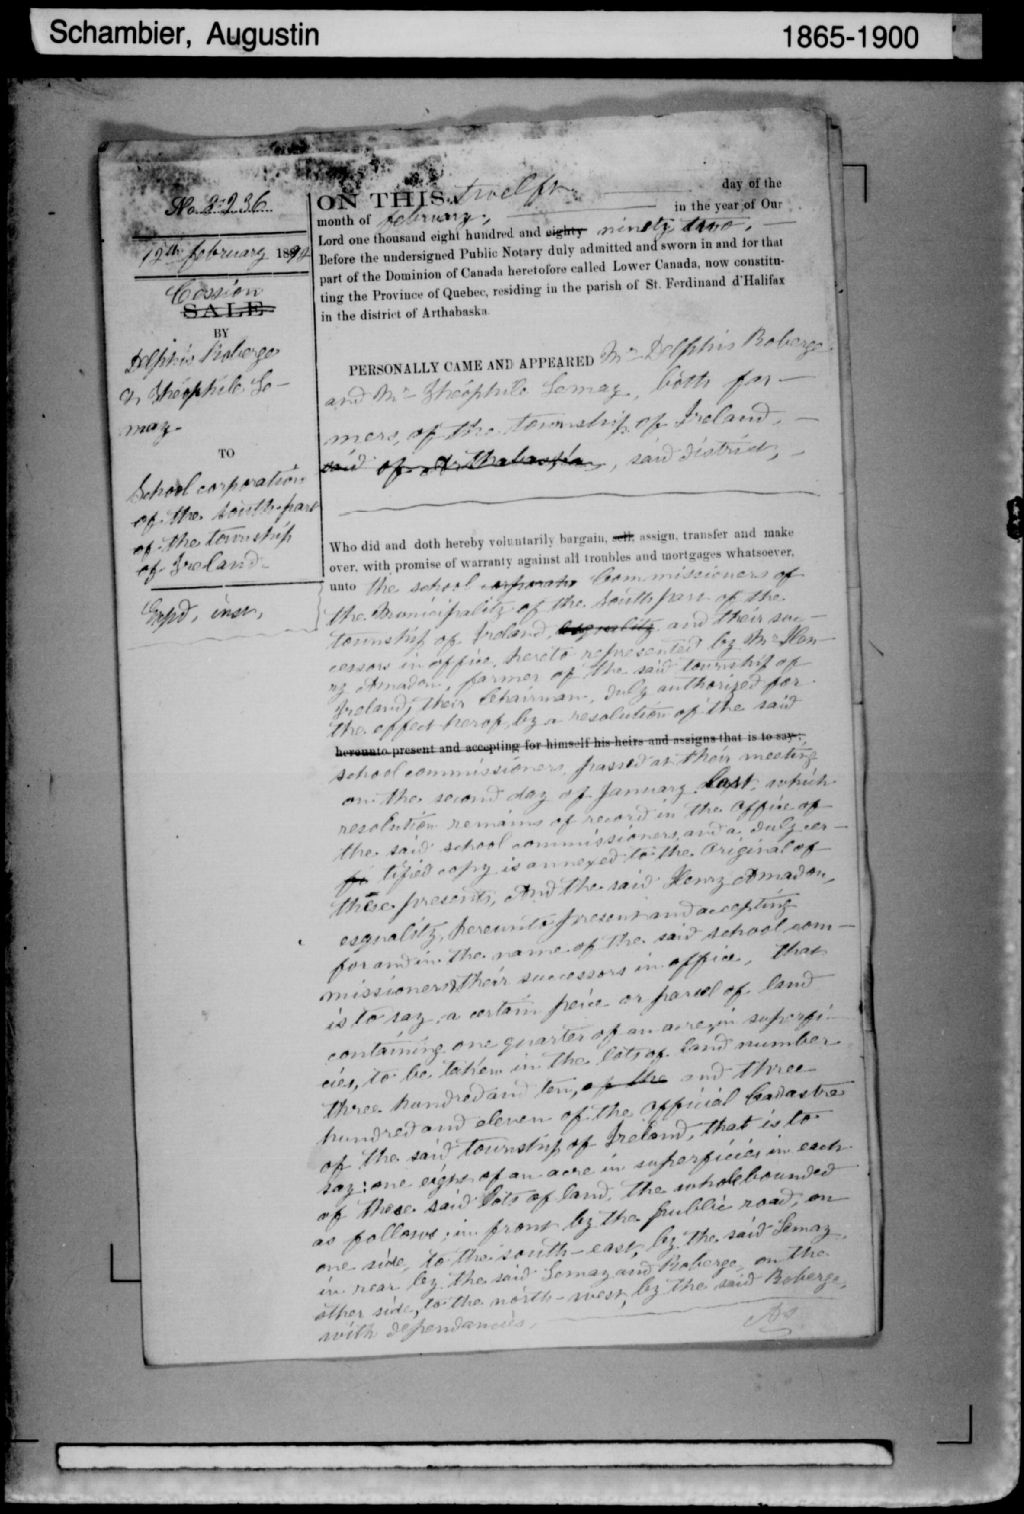 Schambier, Augustin
1865-1900
No 3236
12th february 1892
Cession
SALE
BY
Delphis Roberge
& Théophile Le-
may-
TO
School corporation
of the South part
of the township
of Ireland-
Exp'd, insr,
ON THIS twelfth day of the
month of february, in the year of Our
Lord one thousand eight hundred and eighty ninety two,
Before the undersigned Public Notary duly admitted and sworn in and for that
part of the Dominion of Canada heretofore called Lower Canada, now constitu-
ting the Province of Quebec, residing in the parish of St. Ferdinand d'Halifax
in the district of Arthabaska.
PERSONALLY CAME AND APPEARED Mr Delphis Roberge
and Mr Théophile Lemay, both far-
mers, of the township of Ireland,
said of Arthabaska, said district,
Who did and doth hereby voluntarily bargain, sell, assign, transfer and make
over, with promise of warranty against all troubles and mortgages whatsoever,
unto the school corporatio Commissioners of
the Municipality of the South part of the
township of Ireland, esqnality and their suc-
cessors in office, hereto represented by Mr Hen-
ry Amadon, farmer of the said township of
Ireland, their Chairman, duly authorized for
the effect herof, by a resolution of the said
hereunto present and accepting for himself his heirs and assigns that is to say:
school commissioners, passed at their meeting
on the second day of January last, which
resolution remains of record in the Office of
the said school commissioners, and a duly cer-
tified copy is annexed to the Original of
these presents, And the said Henry Amadon,
esqnality, hereunto present and accepting
for and in the name of the said school com-
missioners & their successors in office, that
is to say, a certain peice or parcel of land
containing one quarter of an acre, in superfi-
cies, to be taken in the lots of land number
three hundred and ten, of the and three
hundred and eleven of the official Cadastre
of the said township of Ireland, that is to
say: one eight of an acre in superficies in each
of these said lots of land, the whole bounded
as follows: in front by the public road, on
one side, to the south-east, by the said Lemay,
in rear by the said Lemay and Roberge, on the
other side, to the north-west, by the said Roberge,
with dependancies,
As